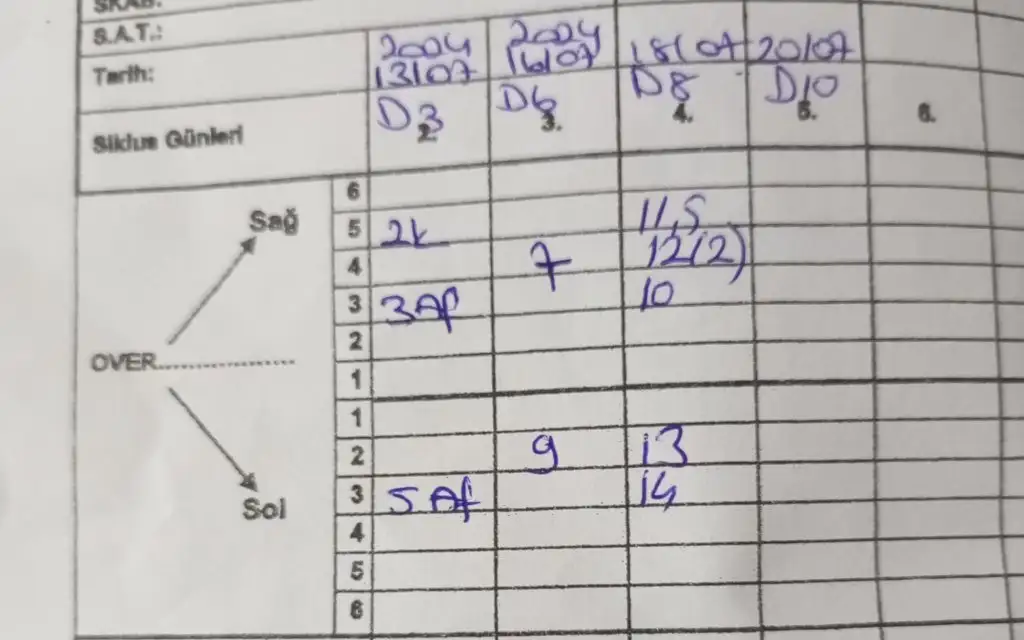 SKAB.
S.A.T.:
2024 2024
Tarih: 13/07 16/07 18/07 20/07
Siklus Günleri D3 D6 D8 D10
2. 3. 4. 5. 6.
6
Sağ 5 2k 11,5
4 7 12(2)
3 3AF 10
2
OVER 1
1
2 9 13
3 5 AF 14
Sol
4
5
6